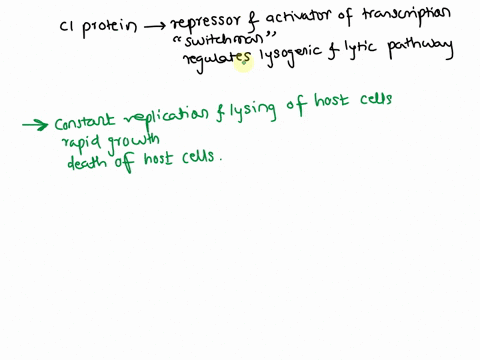 CI protein → repressor & activator of transcription
"switchman"
regulates lysogenic & lytic pathway
→ Constant replication & lysing of host cells
rapid growth
death of host cells.